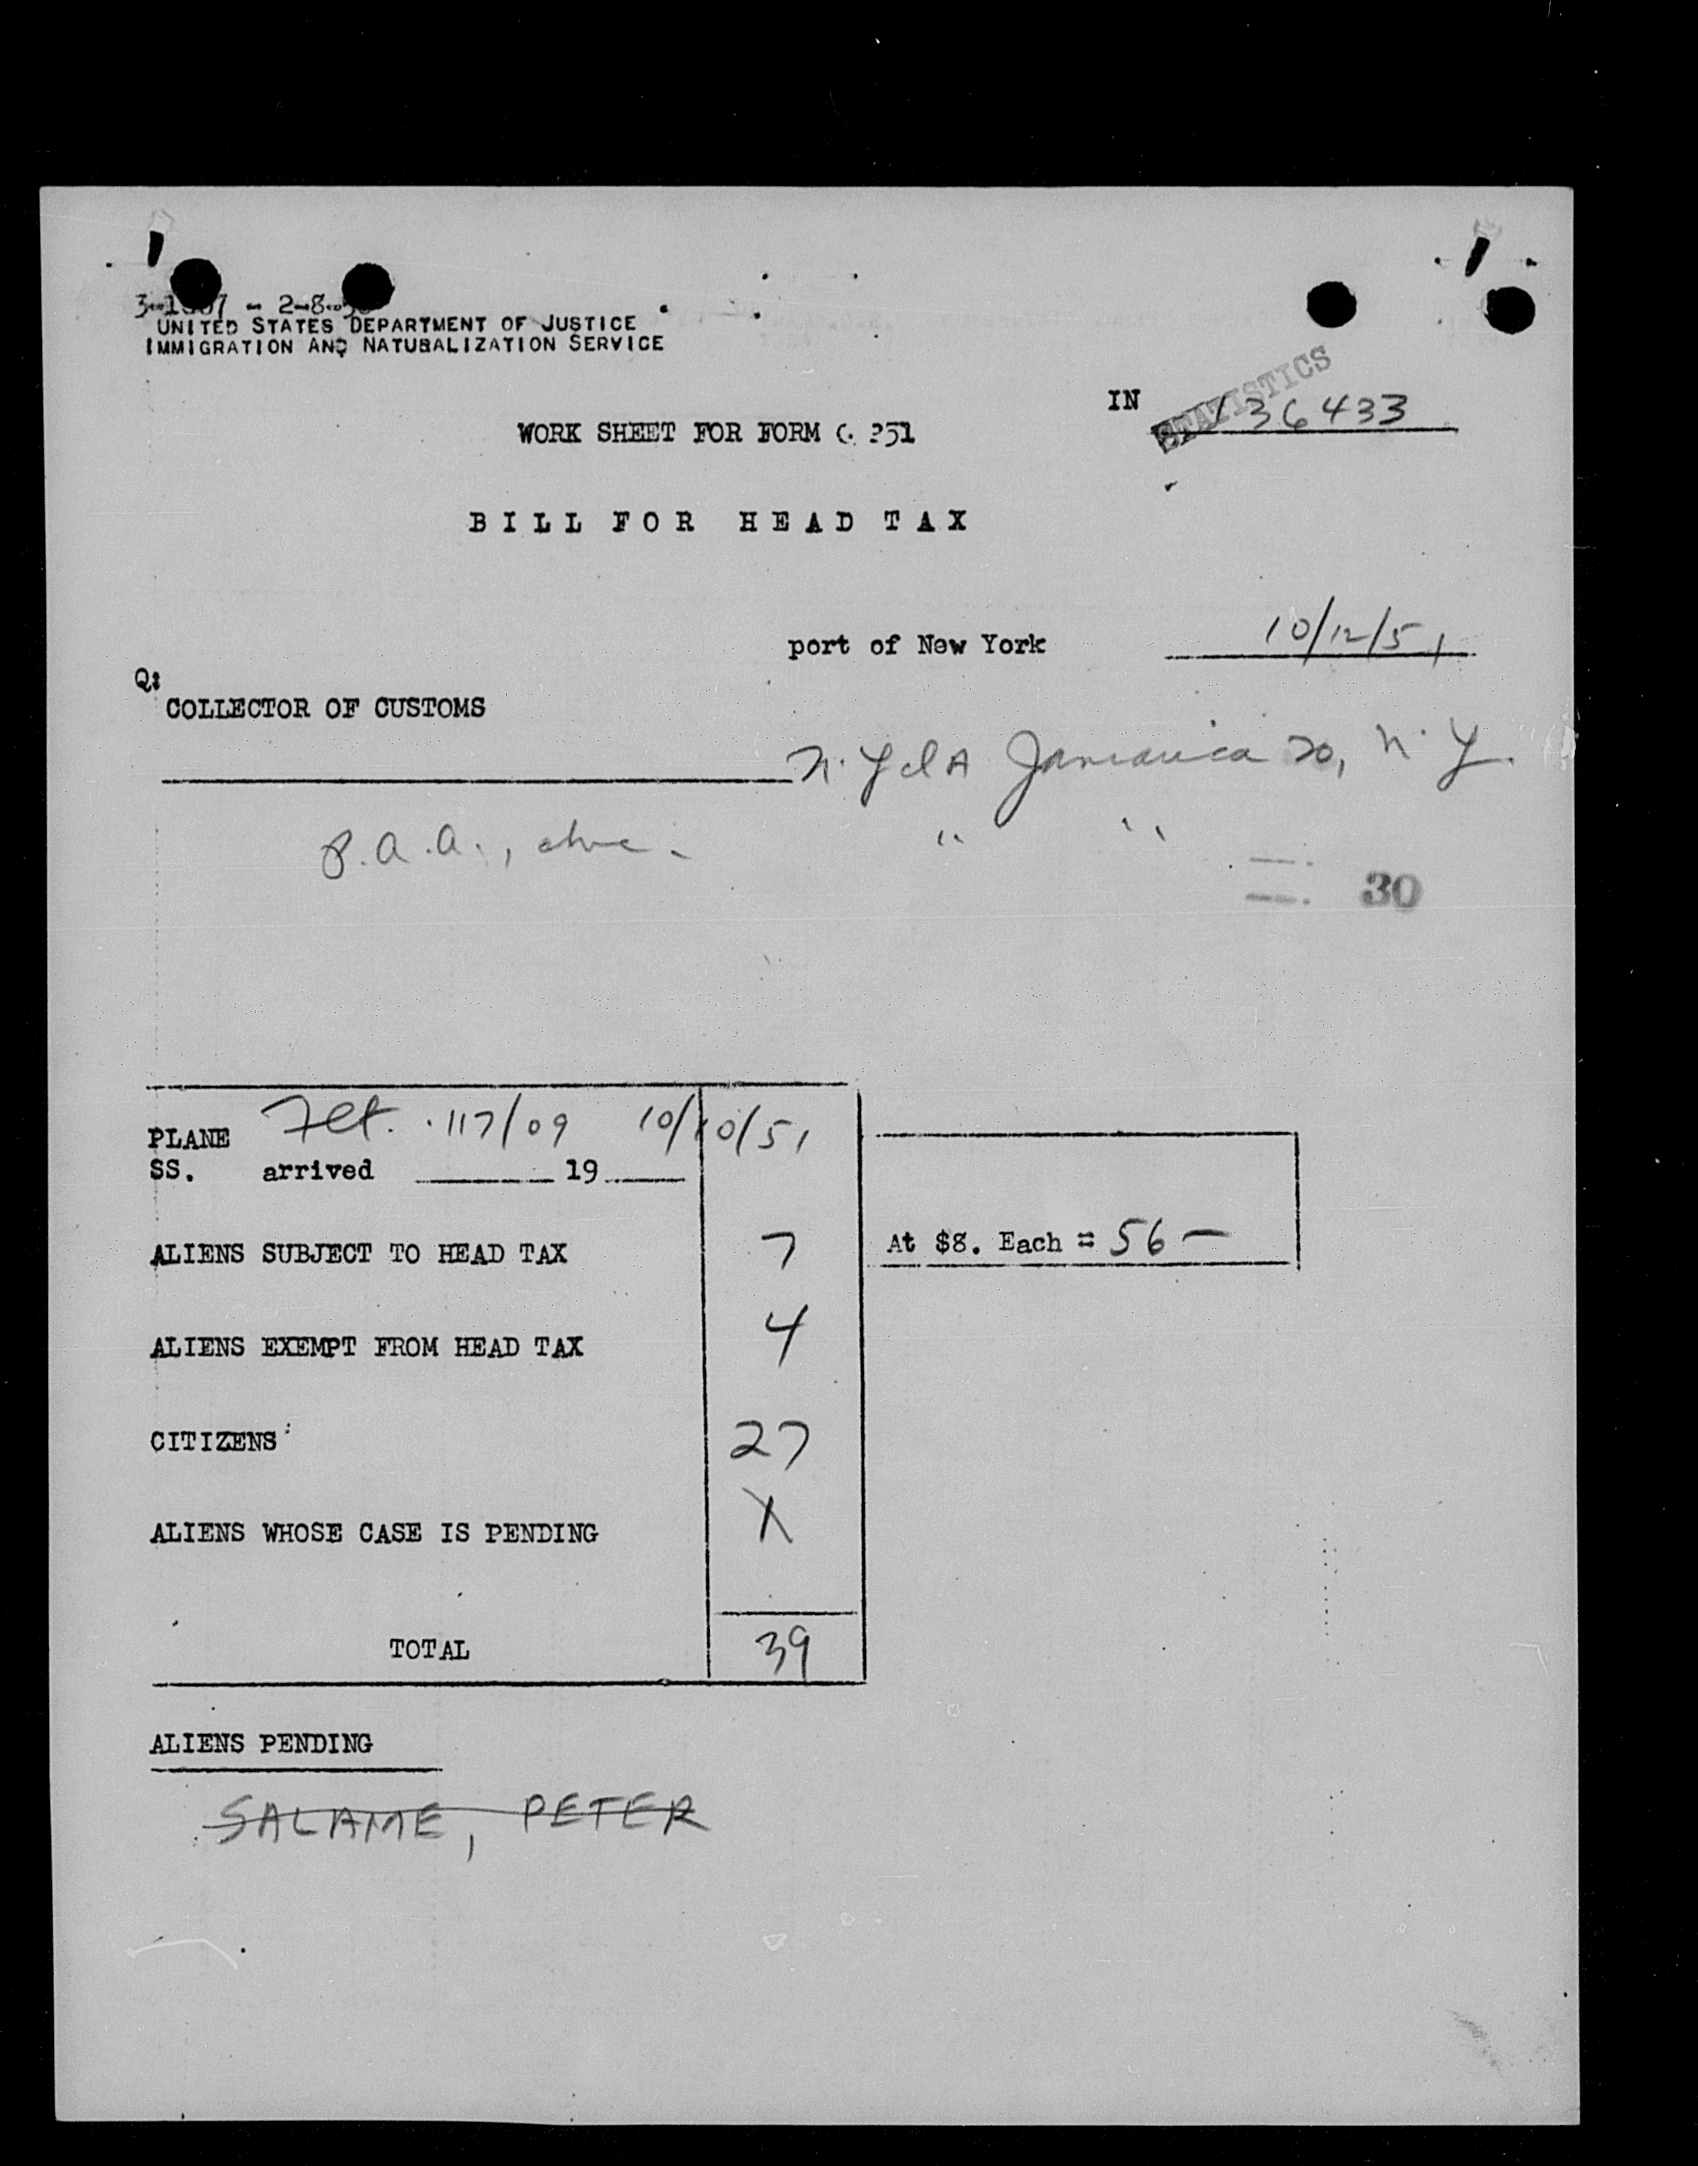 - 2-8-
UNITED STATES DEPARTMENT OF JUSTICE
IMMIGRATION AND NATURALIZATION SERVICE
STATISTICS
IN 136433
WORK SHEET FOR FORM
BILL FOR HEAD TAX
port of New York 10/12/51
Q:
COLLECTOR OF CUSTOMS
Jamaica 20, N.Y.
P.A.A.,
" "
30
PLANE Flt. 117/09 10/10/51
SS. arrived 19
ALIENS SUBJECT TO HEAD TAX 7 At $8. Each = 56 —
ALIENS EXEMPT FROM HEAD TAX 4
CITIZENS 27
ALIENS WHOSE CASE IS PENDING X
TOTAL 39
ALIENS PENDING
SALAME, PETER